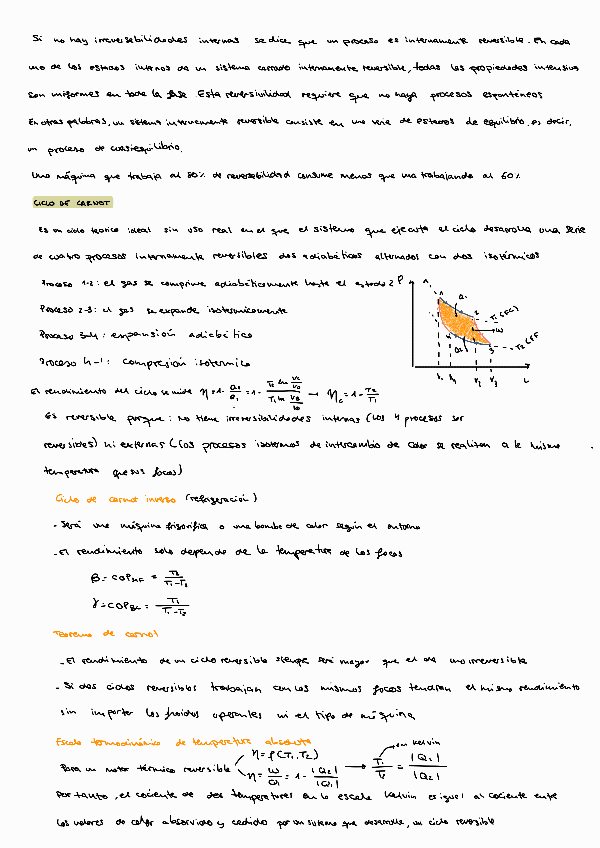 Si no hay irreversebilidades internas se dice que un proceso es internamente reversible. En cada
uno de los estados internos de un sistema cerrado internamente reversible, todas las propiedades intensivas
son uniformes en toda la fase Esta reversivilidad requiere que no haya procesos espontáneos
En otras palabras, un sistema internamente reversible consiste en una serie de estados de equilibrio, es decir,
un proceso de cuasiequilibrio.
Una máquina que trabaja al 80% de reversebilidad consume menos que una trabajando al 60%
CICLO DE CARNOT
Es un ciclo teórico ideal sin uso real en el que el sistema que ejecuta el ciclo desarrolla una serie
de cuatro procesos internamente reversibles dos adiabáticos alternados con dos isotérmicos
Proceso 1-2: el gas se comprime adiabáticamente hasta el estado 2
Proceso 2-3: el gas se expande isotermicamente
Proceso 3-4: expansión adiabática
Proceso 4-1: compresión isotermica
P
Q1
W
Q2
V1 V4 V2 V3
El rendimiento del ciclo se mide η = 1- Q2/Q1 = 1- → ηc = 1- T2/T1
Es reversible porque: No tiene irreversibilidades internas (los 4 procesos ser
reversibles) ni externas (los procesos isotermos de intercambio de calor se realizan a la misma
temperatura que sus focos)
Ciclo de carnot inverso (refrigeración)
- Será una máquina frigorífica o una bomba de calor según el entorno
- El rendimiento solo depende de la temperatura de los focos
β = COPMF = T2/T1-T2
γ = COPBC = T1/T1-T2
Teorema de carnot
- El rendimiento de un ciclo reversible siempre será mayor que el de uno irreversible
- Si dos ciclos reversibles trabajan con los mismos focos tendran el mismo rendimiento
sin importar los fluidos operantes ni el tipo de máquina
Escala termodinámica de temperatura absoluta
en kelvin
η = f(T1, T2)
Para un motor térmico reversible η = W/Q1 = 1 - |Q2|/|Q1| → T1/T2 = |Q1|/|Q2|
Por tanto, el cociente de dos temperaturas en la escala Kelvin es igual al cociente entre
los valores de calor absorvido y cedido por un sistema que desarrolle, un ciclo reversible